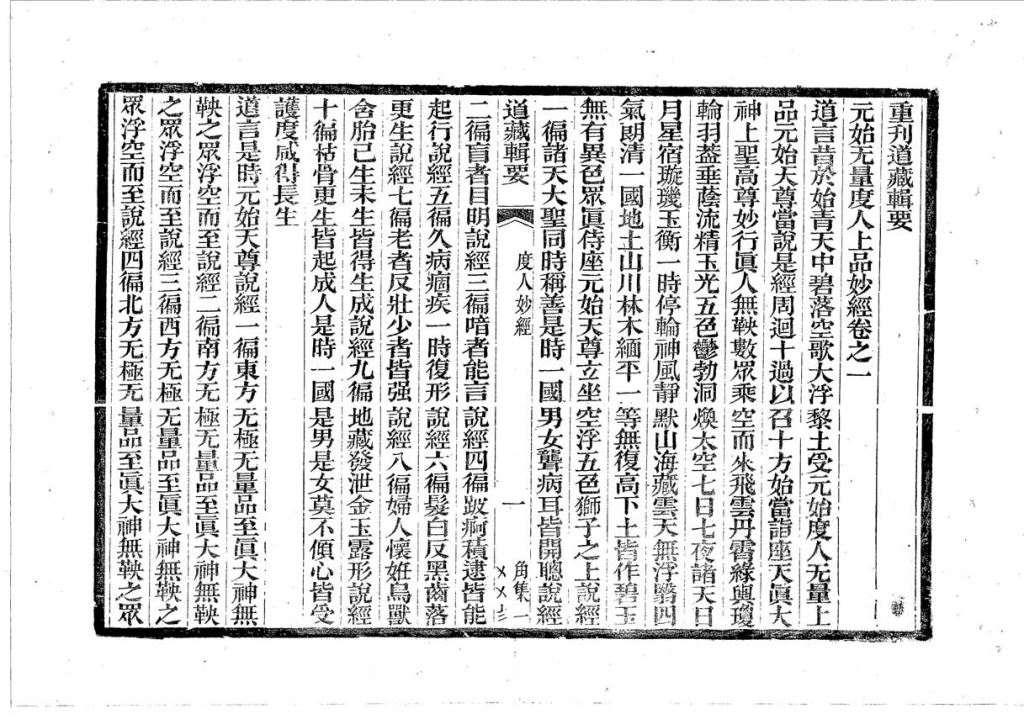 重刊道藏輯要
元始无量度人上品妙經卷之一
道言昔於始青天中碧落空歌大浮黎土受元始度人无量上
品元始天尊當說是經周迴十過以召十方始當詣座天眞大
神上聖高尊妙行眞人無鞅數眾乘空而來飛雲丹霄綠輿瓊
輪羽葢垂蔭流精玉光五色鬱勃洞煥太空七日七夜諸天日
月星宿璇璣玉衡一時停輪神風靜默山海藏雲天無浮翳四
氣朗清一國地土山川林木緬平一等無復高下土皆作碧玉
無有異色眾眞侍座元始天尊立坐空浮五色獅子之上說經
一徧諸天大聖同時稱善是時一國男女聾病耳皆開聰說經
道藏輯要
度人妙經
一
角集一
二徧盲者目明說經三徧暗者能言說經四徧跛痾積逮皆能
起行說經五徧久病痼疾一時復形說經六徧髮白反黑齒落
更生說經七徧老者反壯少者皆强說經八徧婦人懷姙鳥獸
含胎己生未生皆得生成說經九徧地藏發泄金玉露形說經
十徧枯骨更生皆起成人是時一國是男是女莫不傾心皆受
護度咸得長生
道言是時元始天尊說經一徧東方无極无量品至眞大神無
鞅之眾浮空而至說經二徧南方无極无量品至眞大神無鞅
之眾浮空而至說經三徧西方无極无量品至眞大神無鞅之
眾浮空而至說經四徧北方无極无量品至眞大神無鞅之眾